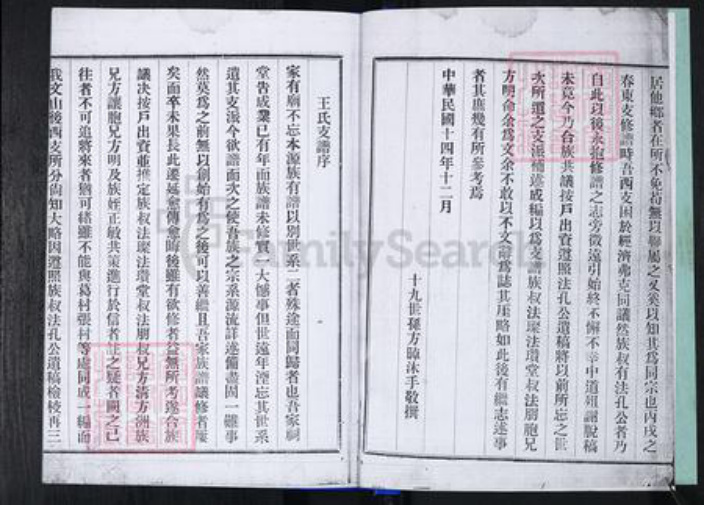 居他鄉者在所不免苟無以聯屬之又奚以知其爲同宗也丙戌之
春東支修譜時吾西支困於經濟弗克同議然族叔有法孔公者乃
自此以後永抱修譜之志旁徵遠引始終不懈不幸中道殂謝脫稿
未竟今乃合族共議按戶出資遵照法孔公遺稿將以前所忘之世
次所遺之支派補述成編以爲支譜族叔法璨法瓚堂叔法朋胞兄
方明命余爲文余不敢以不文辭爲誌其厓略如此後有繼志述事
者其庶幾有所參考焉
中華民國十四年十二月
十九世孫方 沐手敬撰
王氏支譜序
家有廟不忘本源族有譜以別世系二者殊途而同歸者也吾家祠
堂告成業已有年而族譜未修實一大憾事但世遠年湮忘其世系
遺其支派今欲譜而次之使吾族之宗系源流詳述備盡固一難事
然莫爲之前無以創始有爲之後可以善繼且吾家族譜議修者屢
矣而卒未果長此遷延愈傳愈晦後雖有欲修者益無所考遂合族
議決按戶出資並推定族叔法璨法瓚堂叔法朋叔兄方清方洲族
兄方讓胞兄方明及族姪正敏共策進行於信者註之疑者闕之已
往者不可追將來者猶可緒雖不能與葛村張村等處同成一編而
我文山後西支所分尙知大略因遵照族叔法孔公遺稿檢校再三
FamilySearch